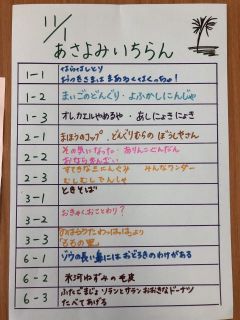 11/1
あさよみいちらん
1-1
はらぺことり
おつきさまはまあるくなくっちゃ!
1-2
まいごのどんぐり・よふかしにんじゃ
1-3
オレ、カエルやめるや・あしにょきにょき
2-1
まほうのコップ・どんぐりむらのぼうしやさん
2-2
その気になった・ありんこぐんだん
おならまんざい
2-3
すてきな三にんぐみ みんなワンダー
むしむしでんしゃ
3-1
ときそば
3-2
おきゃくおことわり?
3-3
のはらうたわっはっはより
「るるの星」
6-1
ゾウの長い鼻にはおどろきのわけがある
6-2
氷河ねずみの毛皮
6-3
ふたごまじょ ソランとサラン おおきなドーナツ
たべてあげる